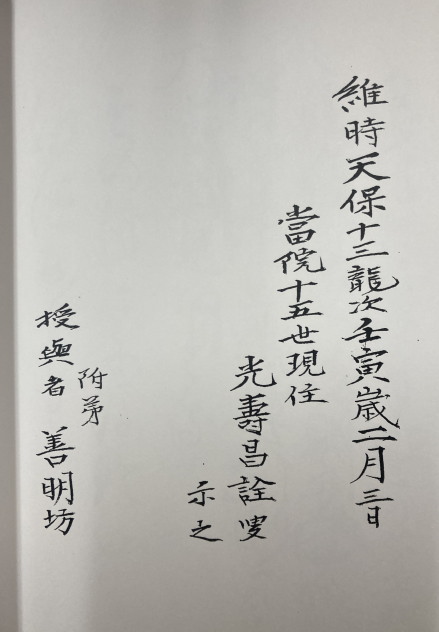 維時天保十三龍次壬寅歳二月三日
當院十五世現住
光壽昌詮叟
示之
附弟
授與者 善明坊